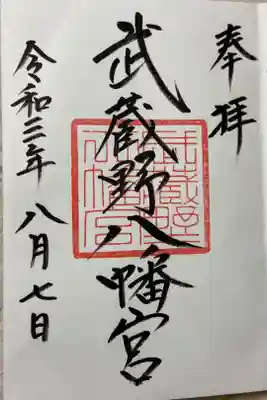 奉拝
武蔵野八幡宮
令和三年八月七日
武蔵野八幡宮